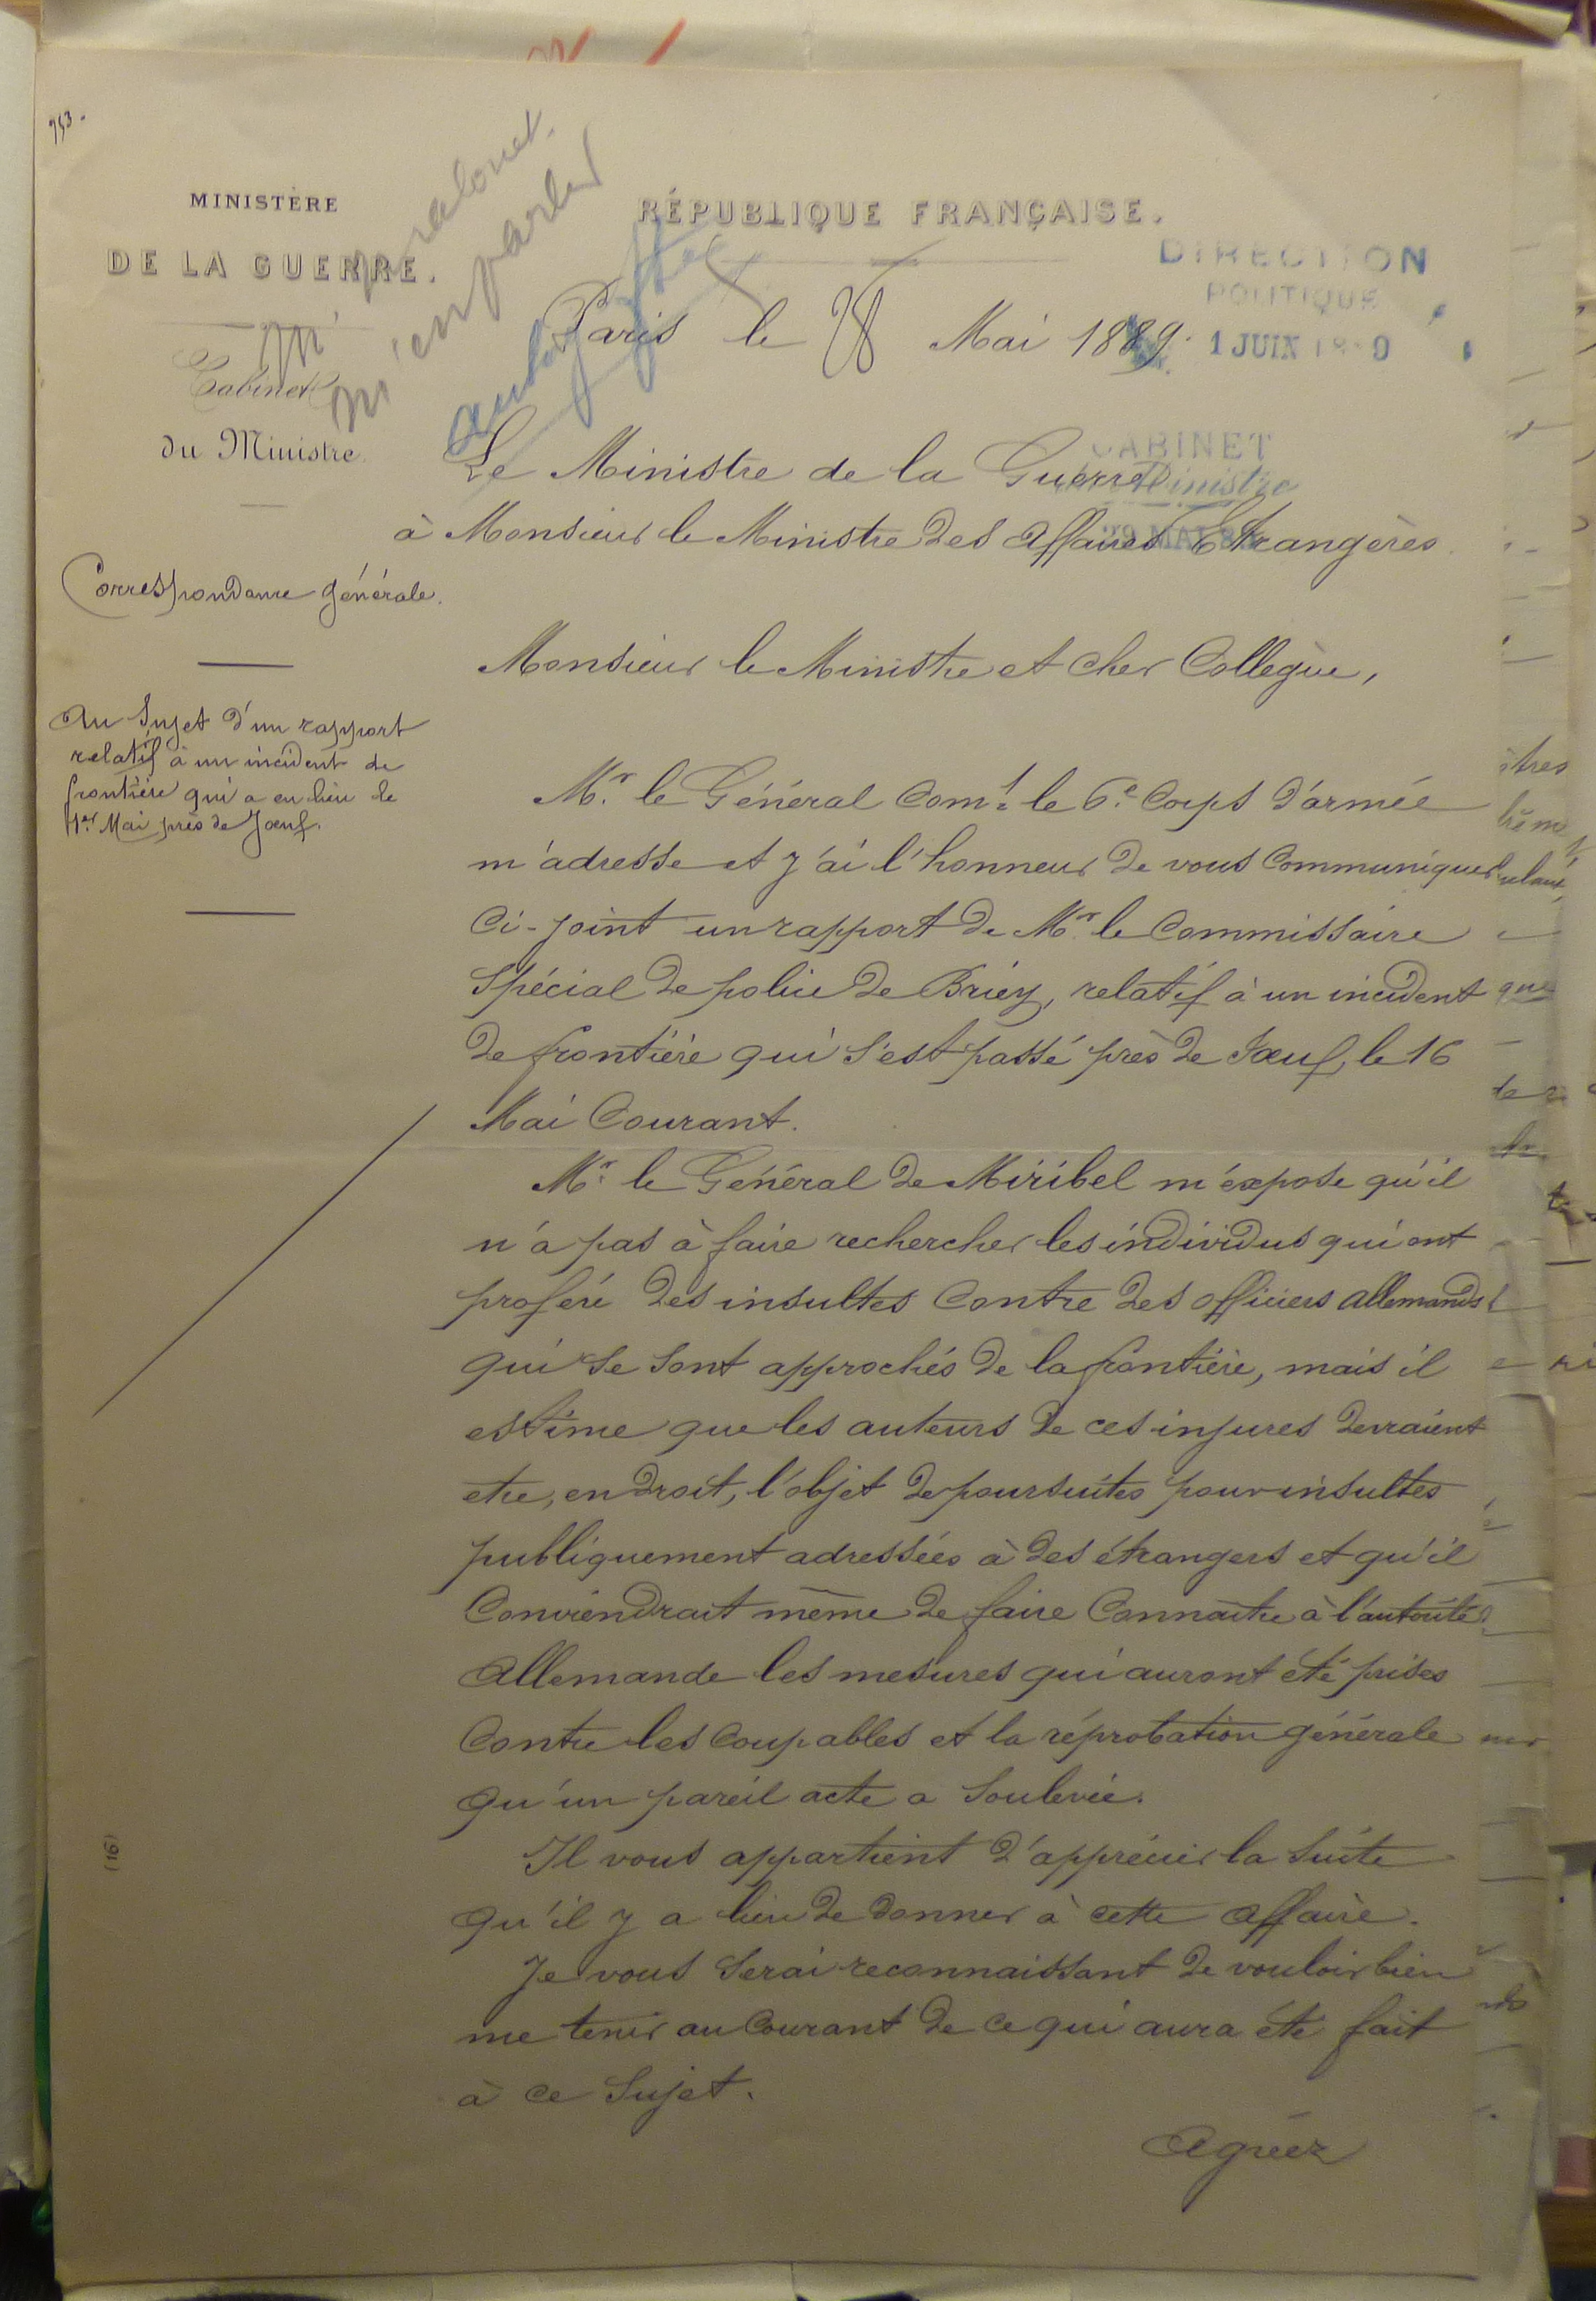 753.
MINISTÈRE
DE LA GUERRE.
Cabinet
du Ministre.
m'en parler
RÉPUBLIQUE FRANÇAISE.
DIRECTION
POLITIQUE
1 JUIN 1889
Paris le 28 Mai 1889.
CABINET
du Ministre
29 MAI 89
Le Ministre de la Guerre
à Monsieur le Ministre des Affaires Etrangères.
Correspondance générale.
Au sujet d'un rapport
relatif à un incident de
frontière qui a eu lieu le
1er Mai près de Jœuf.
Monsieur le Ministre et cher Collègue,
Mr. le Général Comt. le 6e. Corps d'armée
m'adresse et j'ai l'honneur de vous communiquer
ci-joint un rapport de Mr. le Commissaire
Spécial de police de Briey, relatif à un incident
de frontière qui s'est passé près de Jœuf, le 16
Mai Courant.
Mr. le Général de Miribel m'expose qu'il
n'a pas à faire rechercher les individus qui ont
proféré des insultes contre des officiers allemands
qui se sont approchés de la frontière, mais il
estime que les auteurs de ces injures devraient
etre, en droit, l'objet de poursuites pour insultes
publiquement adressées à des étrangers et qu'il
conviendrait même de faire connaître à l'autorité
Allemande les mesures qui auront été prises
contre les coupables et la réprobation générale
qu'un pareil acte a soulevée.
Il vous appartient d'apprécier la suite
qu'il y a lieu de donner à cette affaire.
Je vous serai reconnaissant de vouloir bien
me tenir au courant de ce qui aura été fait
à ce sujet.
Agréez
(16)